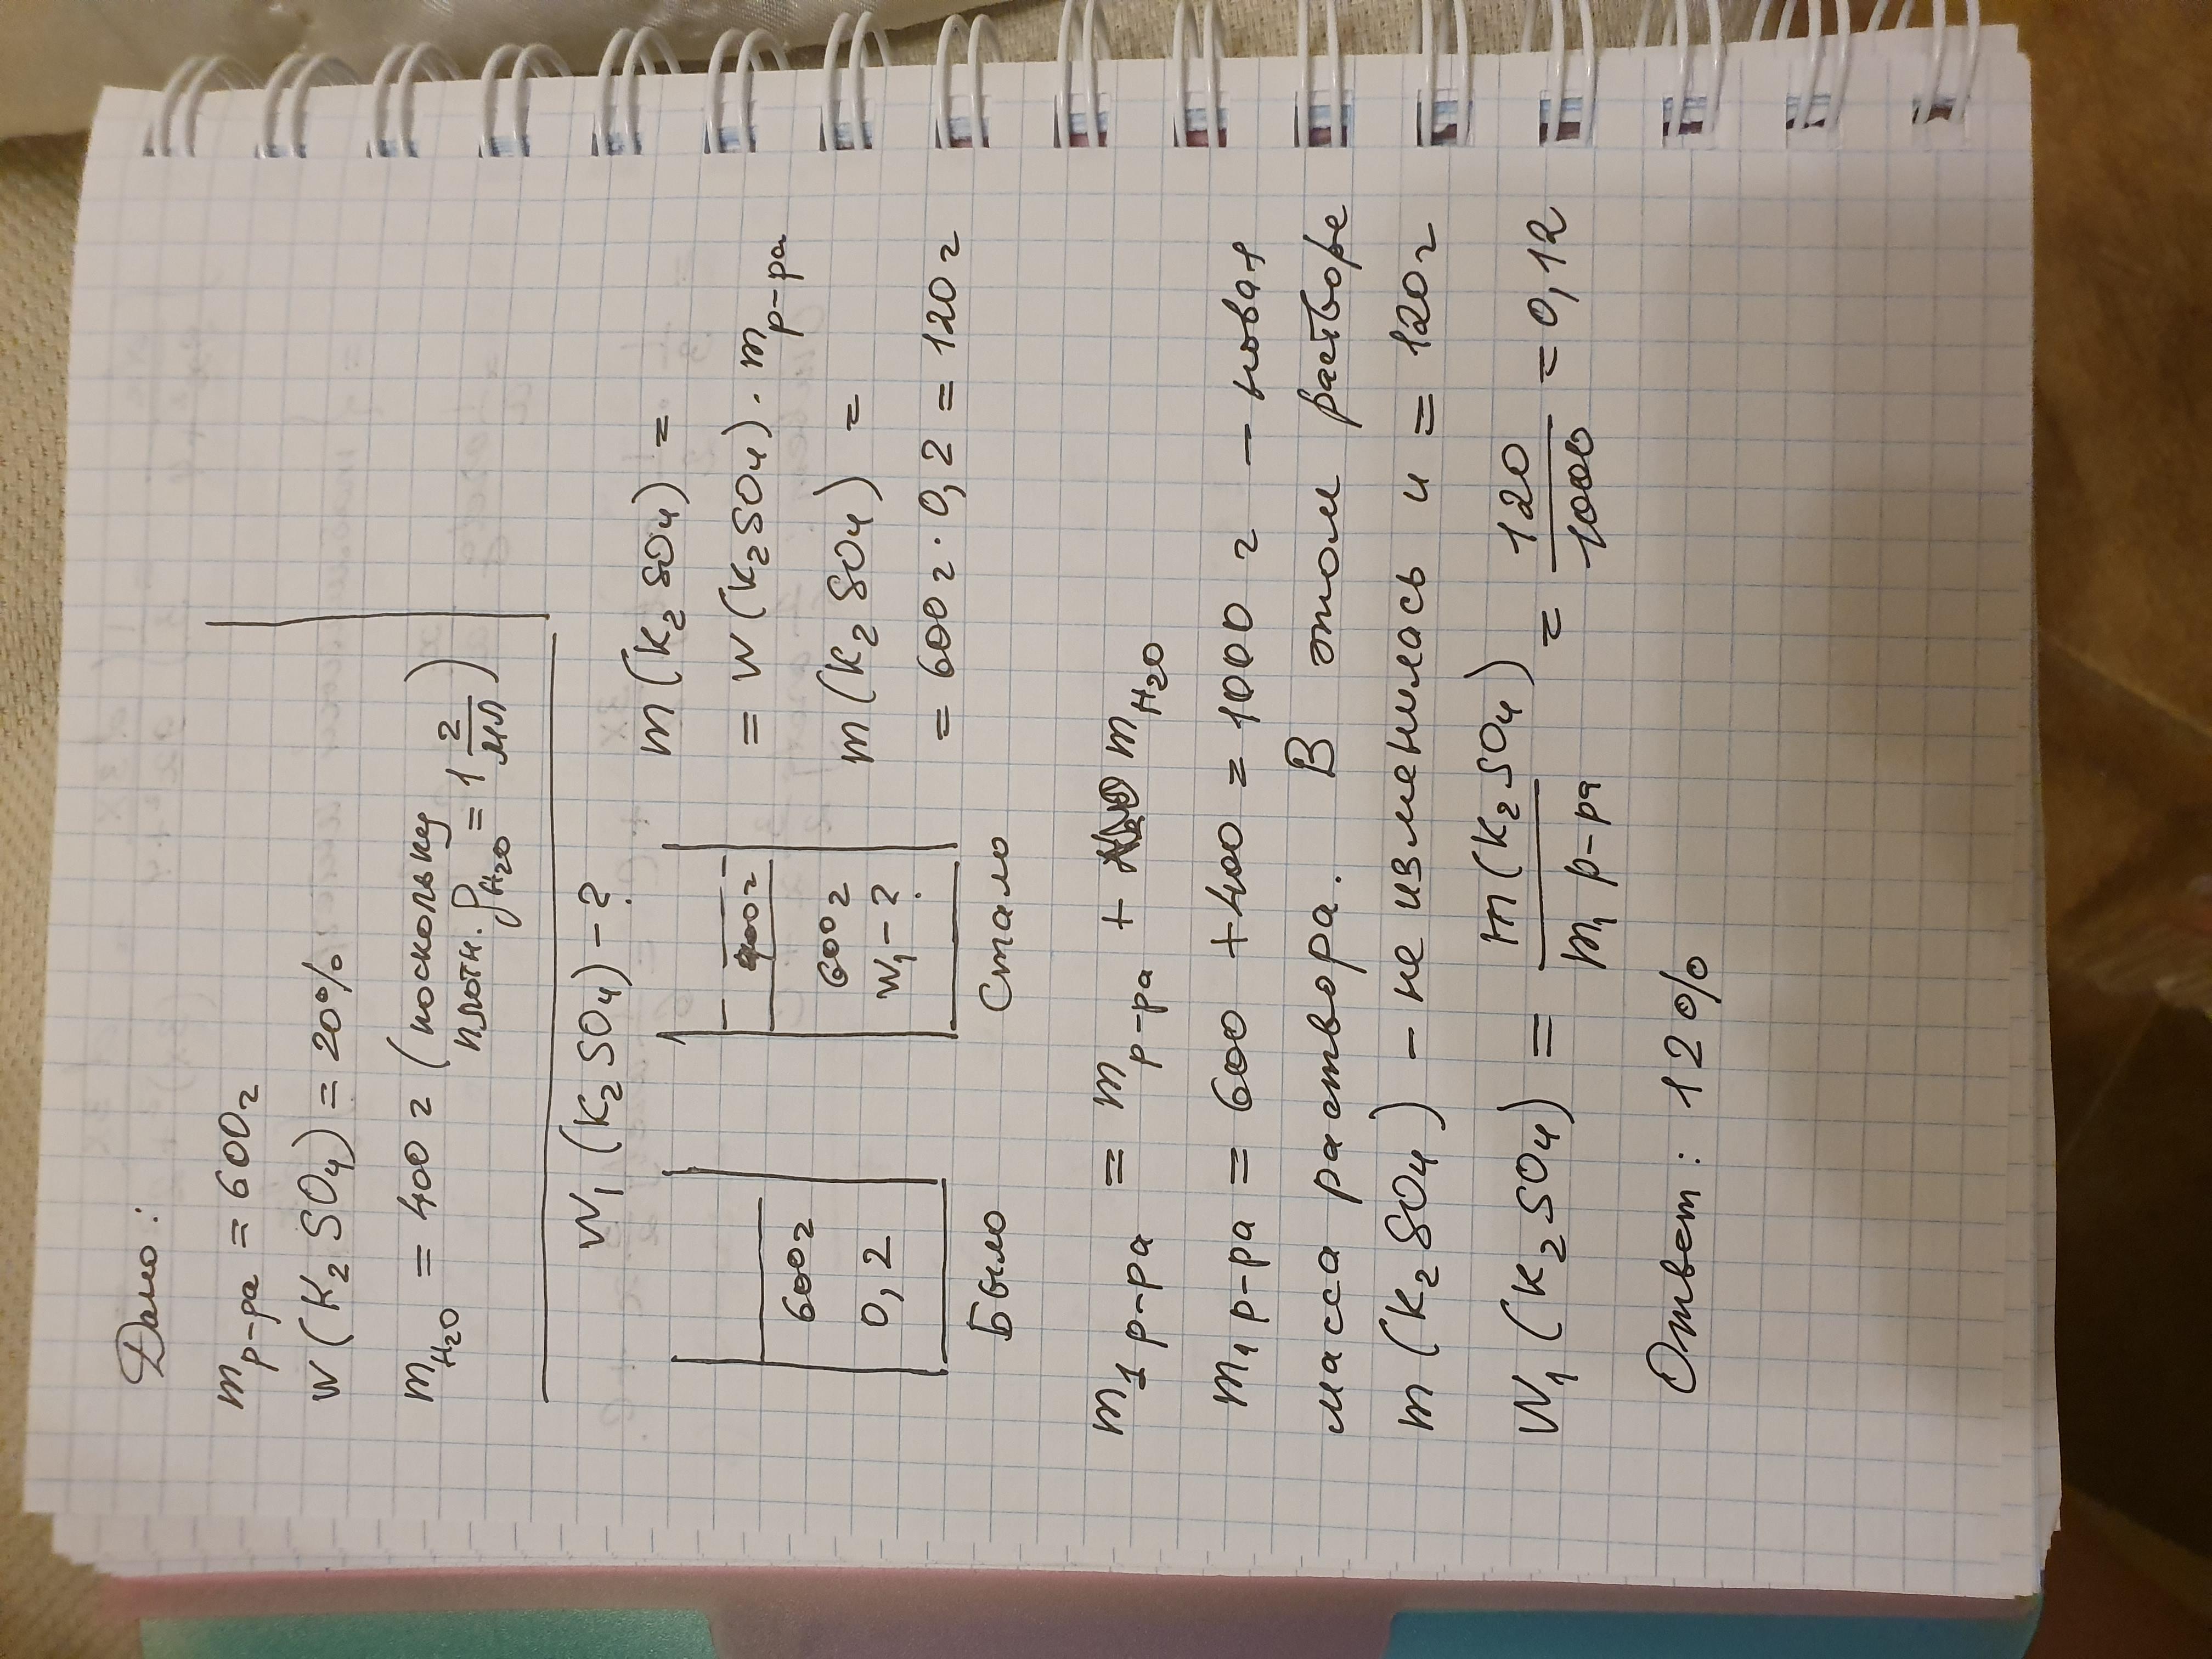 Дано:
m р-ра = 600 г
W (K₂SO₄) = 20%
m H₂O = 400 г (поскольку
плотн. ρ H₂O = 1 г/мл)
W₁ (K₂SO₄) - ?
m (K₂SO₄) =
= W (K₂SO₄) · m р-ра
m (K₂SO₄) =
= 600 г · 0,2 = 120 г
600 г
0,2
Было
400 г
600 г
W₁ - ?
Стало
m₁ р-ра = m р-ра + m H₂O
m₁ р-ра = 600 + 400 = 1000 г - новая
масса раствора. В этом растворе
m (K₂SO₄) - не изменилась и = 120 г
W₁ (K₂SO₄) = m (K₂SO₄) / m₁ р-ра = 120 / 1000 = 0,12
Ответ: 12%